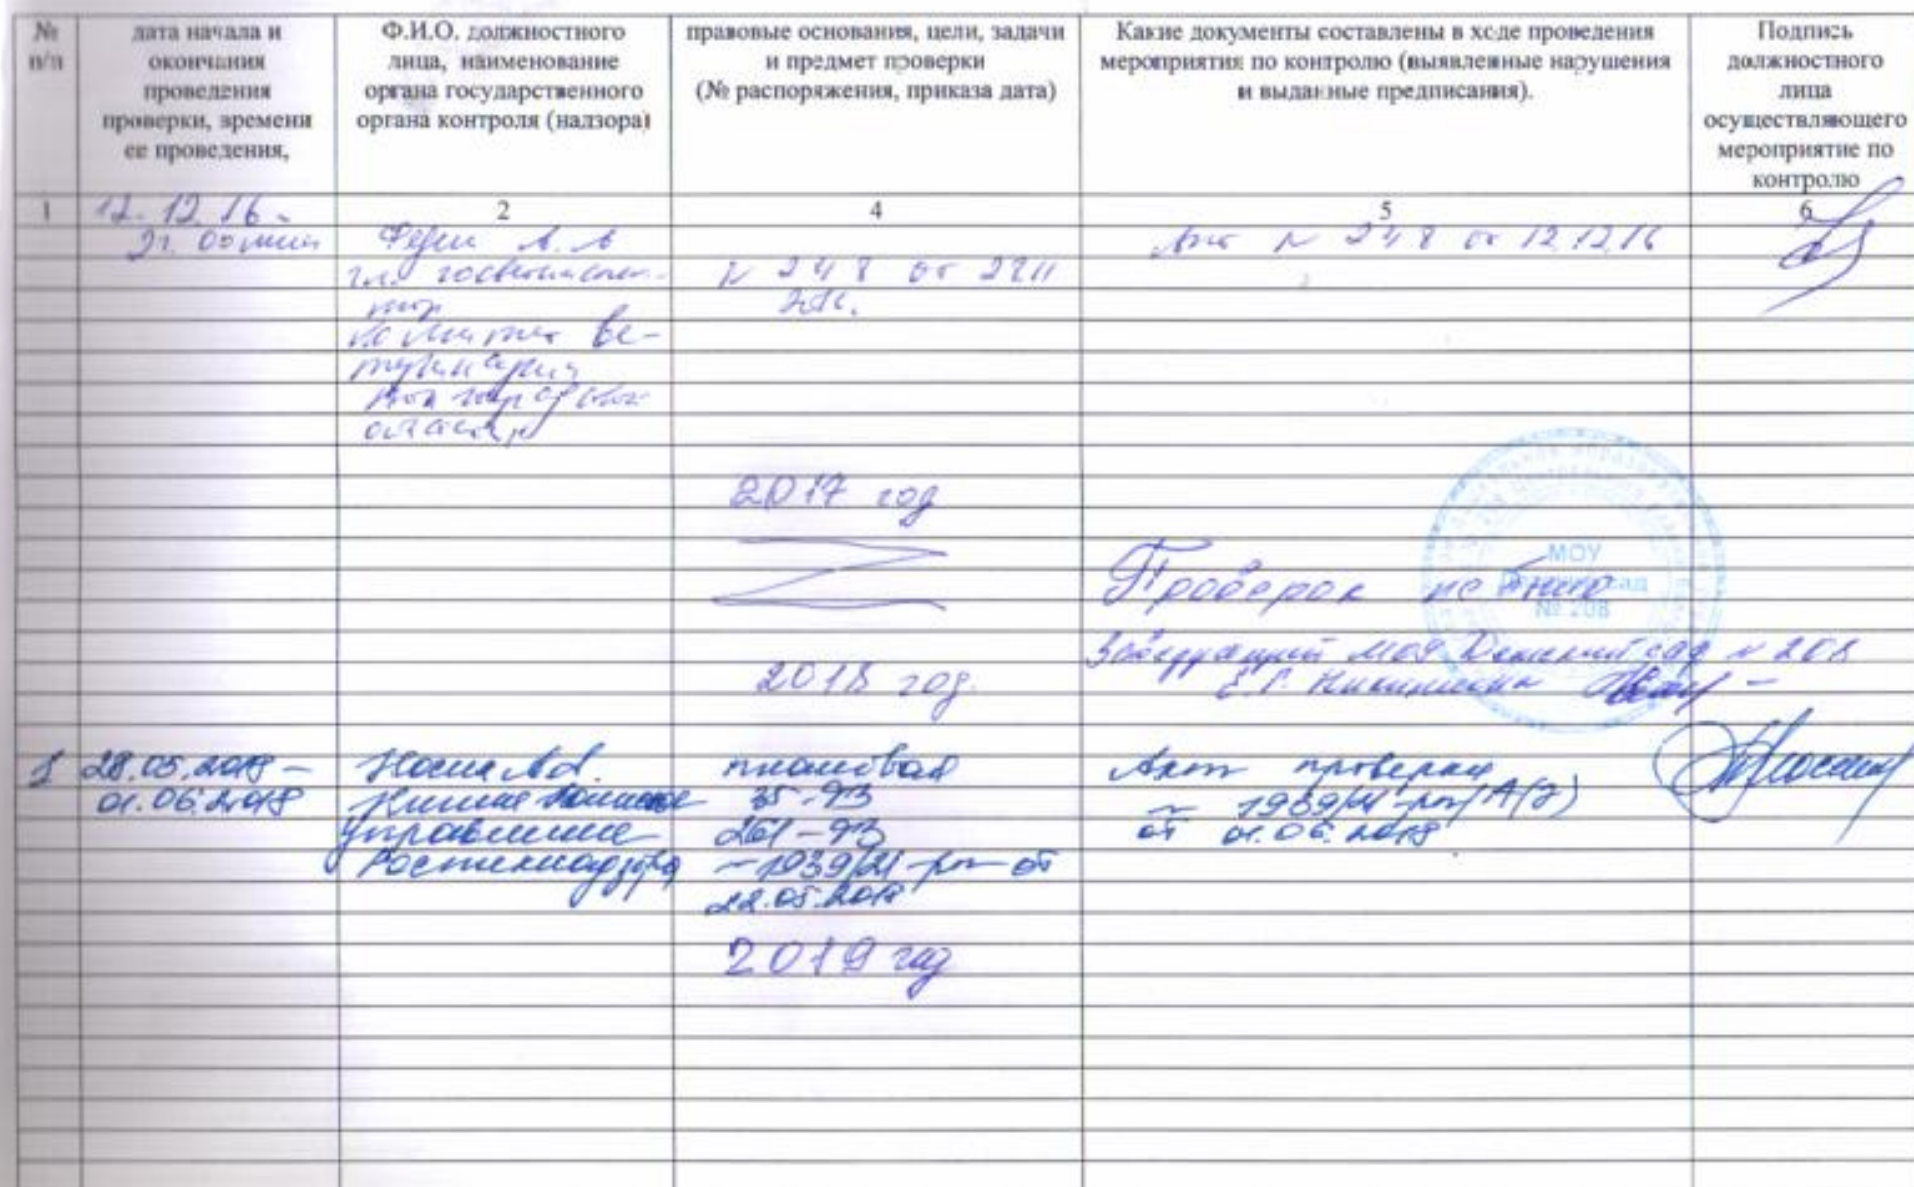 № п/п
дата начала и окончания проведения проверки, времени ее проведения,
Ф.И.О. должностного лица, наименование органа государственного органа контроля (надзора)
правовые основания, цели, задачи и предмет проверки (№ распоряжения, приказа дата)
Какие документы составлены в ходе проведения мероприятия по контролю (выявленные нарушения и выданные предписания).
Подпись должностного лица осуществляющего мероприятие по контролю
1
2
4
5
6
12.12.16
А. А
гл. госветинспек-
тор
комитет ве-
теринарии
области
N 248 от 2811
Акт N 248 от 12.12.16
2017 год
Проверок не было
МОУ
Детский сад
№ 208
Заведующий МОУ Детский сад N 208
2018 год.
1
28.05.2018 –
01.06.2018
Нижне-Волжское
управление
Ростехнадзора
плановая
35-ФЗ
261-ФЗ
от
22.05.2018
Акт проверки
от 01.06.2018
2019 год